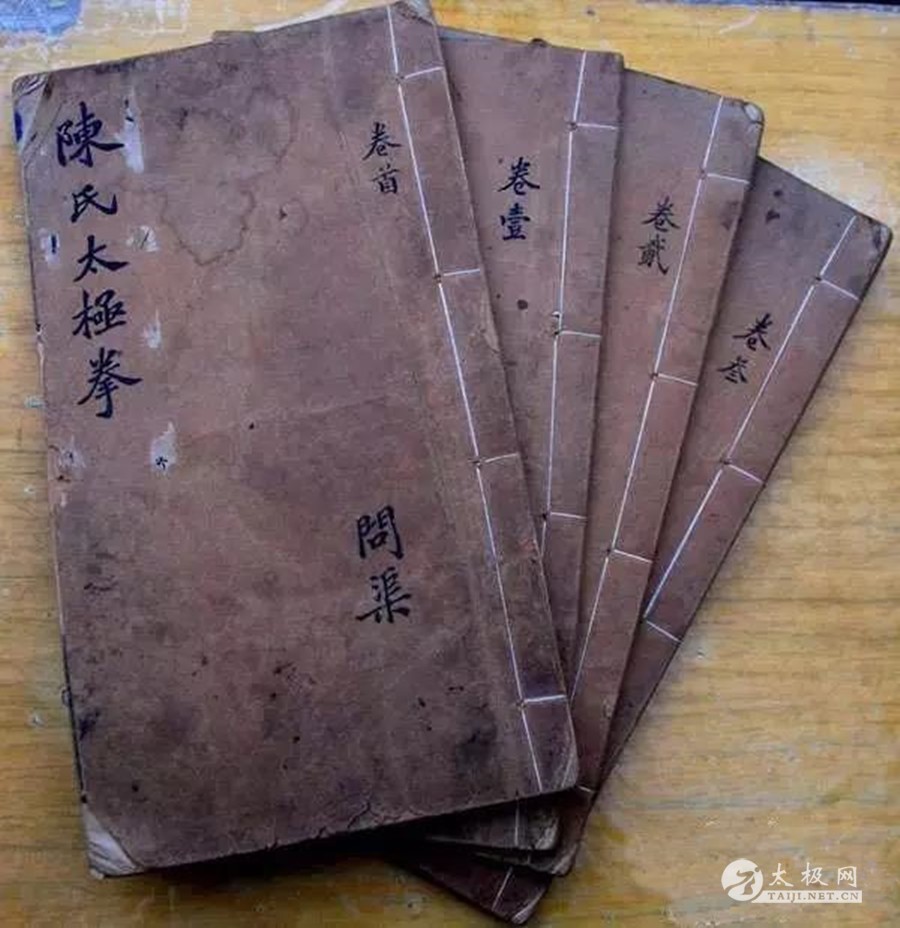 陳氏太極拳
卷首
問渠
卷壹
卷貳
卷叁
太极网
TAIJI.NET.CN